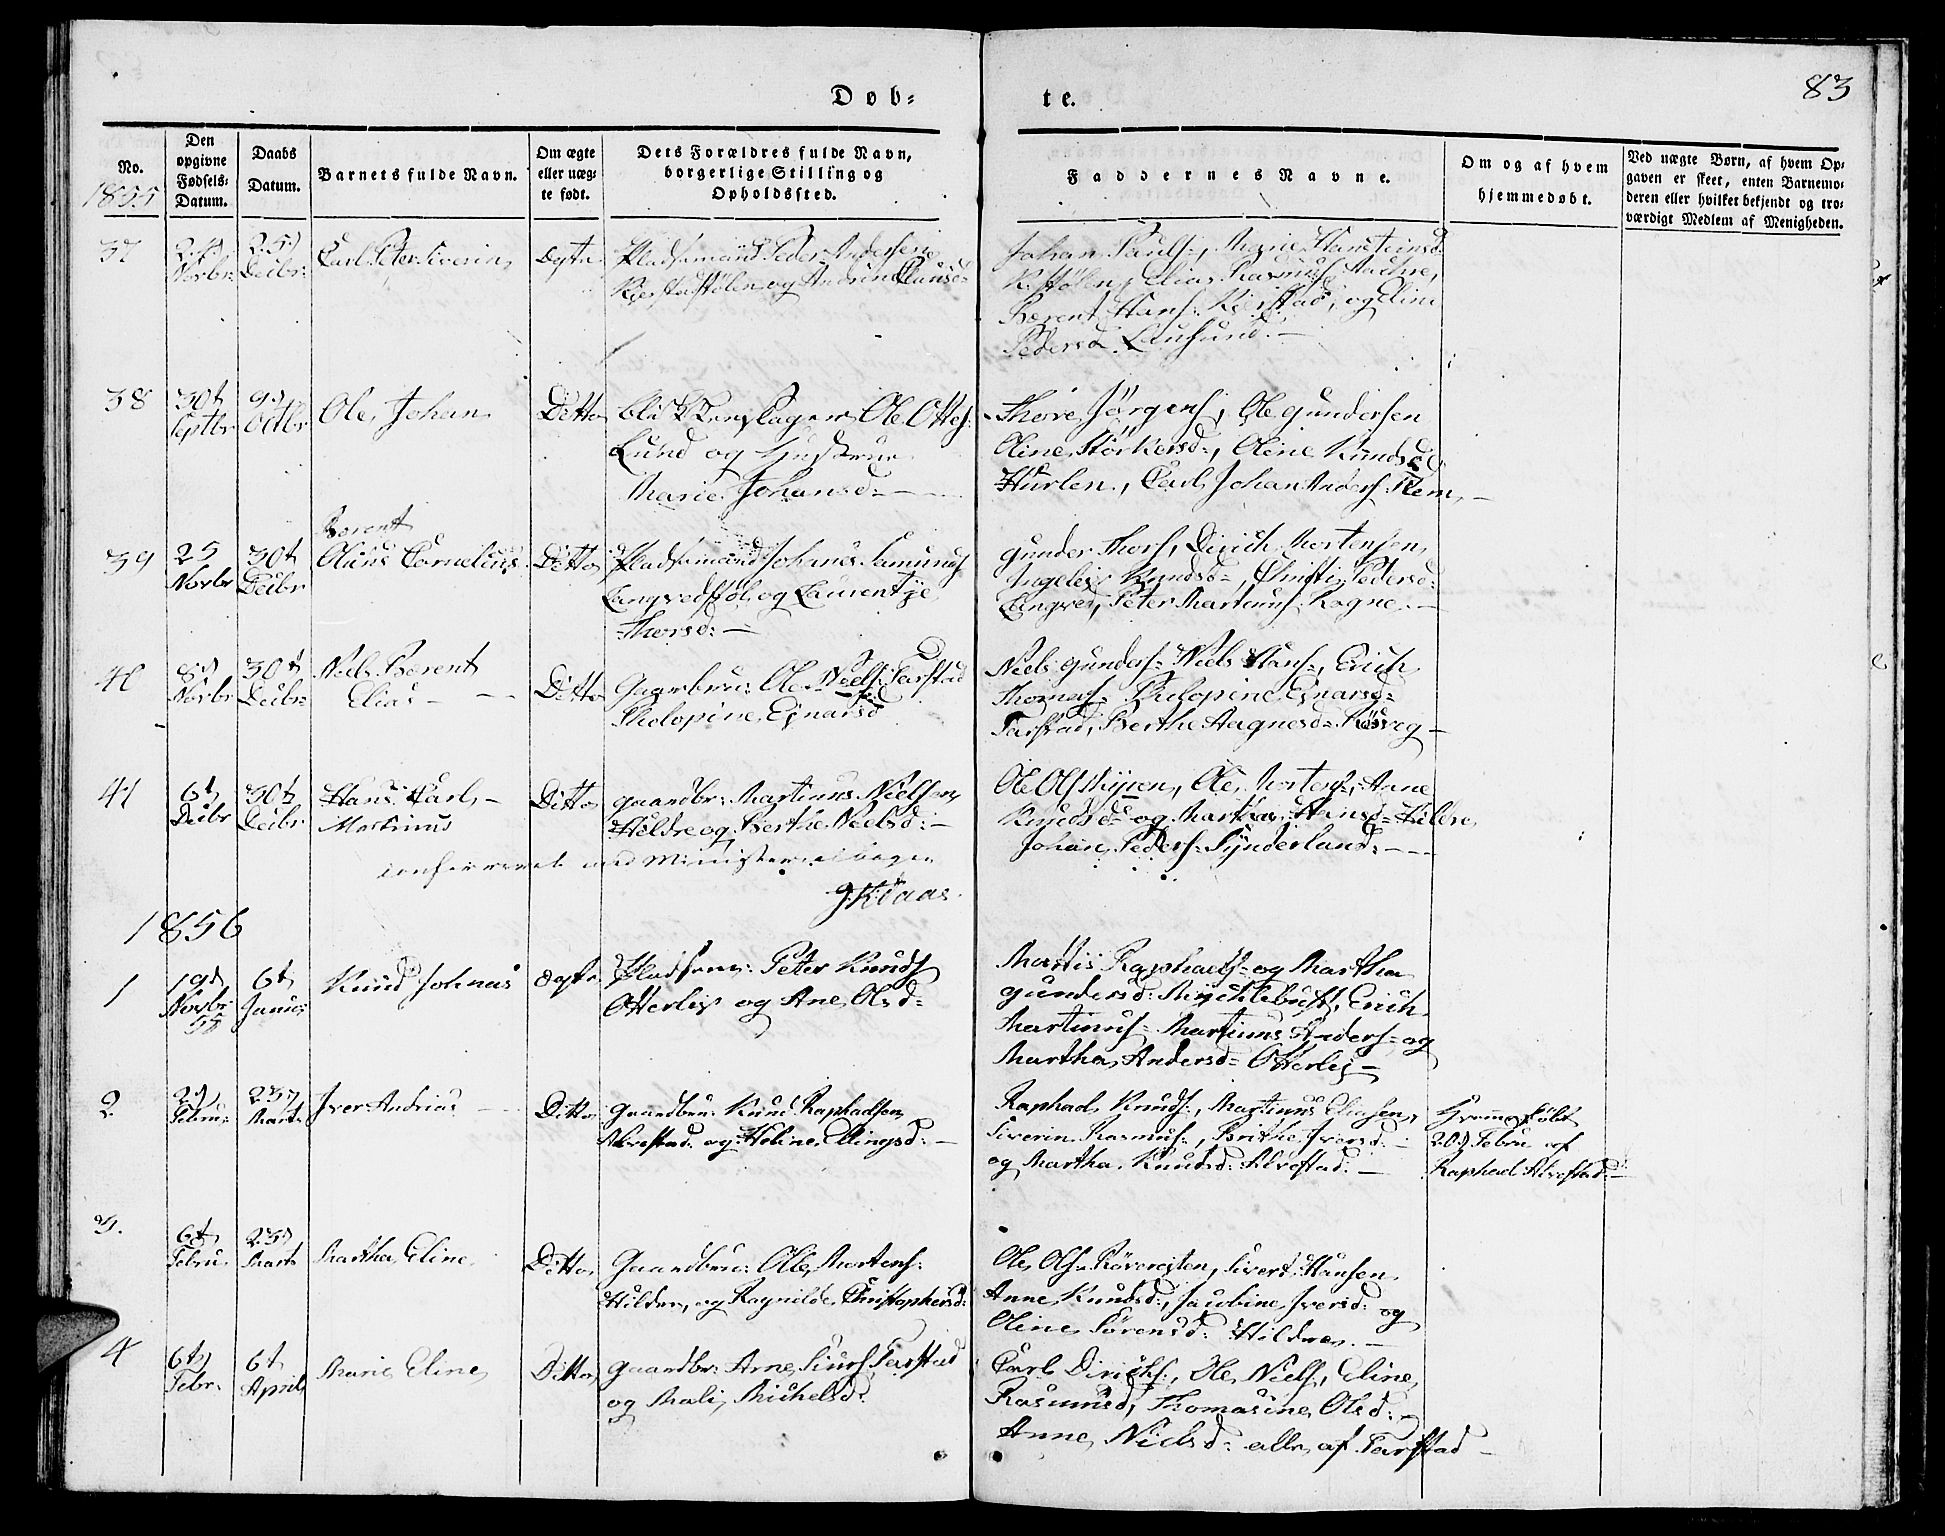 83
Døb-
te.
No.
1855
Den opgivne Fødsels-Datum.
Daabs Datum.
Barnets fulde Navn.
Om ægte eller uægte født.
Dets Forældres fulde Navn, borgerlige Stilling og Opholdssted.
Faddernes Navne.
Om og af hvem hjemmedøbt.
Ved uægte Børn, af hvem Opgaven er skeet, enten Barnemoderen eller hvilket bekjendt og troværdigt Medlem af Menigheden.
37
Novbr: Deibr: Carl Peter Siverin Pladsmand Peder Andersen
og Andrine Clausd=
Johan Pauls:, Marie Hansteensd:
Elias Rasmus
Berent Hans: Kierstad, og Eline
Pedersd:
38
30t Septbr 9d Octbr Ole Johan Ditto
Ole Ottes:
Lund og Hustrue
Marie Johansd:
Thore Jørgens:, Ole Gundersen
Oline Størkersd:, Oline Knudsd
Hurlen, Carl Johan Anders:
39
25 Novbr 30t Deibr
Berent
Olaus Cornelius Ditto Pladsmand Johanes Samuns:
og Laurentje
Thorsd:
Gunder Thors:, Dirich Mortensen
Knudsd=, Christi Pedersd:
Langved, Peter Martinus: Rogne
40
8d Novbr 30t Deibr: Niels Berent
Elias
Ditto Gaardbru: Ole Niels: Tarstad
Pholopine Ejnarsd
Niels Gunders= Niels Hans=, Erich
Thomas: Pholopine Ejnarsd=
Tarstad, Berthe Aagnesd=
41
6t Deibr 30t Deibr Hans Karl
Martinus
Ditto Gaardbr: Martinus Nielsen
Hildre og Berthe Nielsd:
Ole Ols: Myren, Ole Mortens:, Anne
Knudsd= og Martha Hansd= Hildre
Johan Peders: Synderland:
confereret med Ministerialbogen
J. Klaas.
1856
1
19d Novbr: 55 6t Januar Knud Johnas ægte Peter Knuds:
Otterlej og Ane Olsd=
Mattis Raphaels= og Martha
Gundersd: Myklebust, Erich
Martinus= Martinus Anders= og
Martha Andersd= Otterlej
2
2d Febru: 23d Marts Iver Andrias Ditto Gaardbru: Knud Raphaelsen
Alvestad og Heline Ellingsd:
Raphael Knuds:, Martinus Eliasen,
Siverin Rasmus:, Brithe Iversd:
og Martha Knudsd: Alvestad:
Hjemmedøbt
20d Febru af
Raphael Alvestad:
3.
6t Febru: 23d Marts Martha Eline Ditto Gaardbru: Ole Mortens:
Hildre, og Ragnilde Christophersd:
Ole Ols: Sivert Hansen
Anne Knudsd:, Jacobine Iversd: og
Oline Sørensd: Hildre
4
6t Febr: 6t April Marie Eline Ditto Gaardbr: Arne Siurs: Tarstad
og Mali Michelsd:
Carl Dirichs:, Ole Niels:, Eline
Rasmusd, Thomasine Olsd:
Anne Nielsd= alle af Tarstad